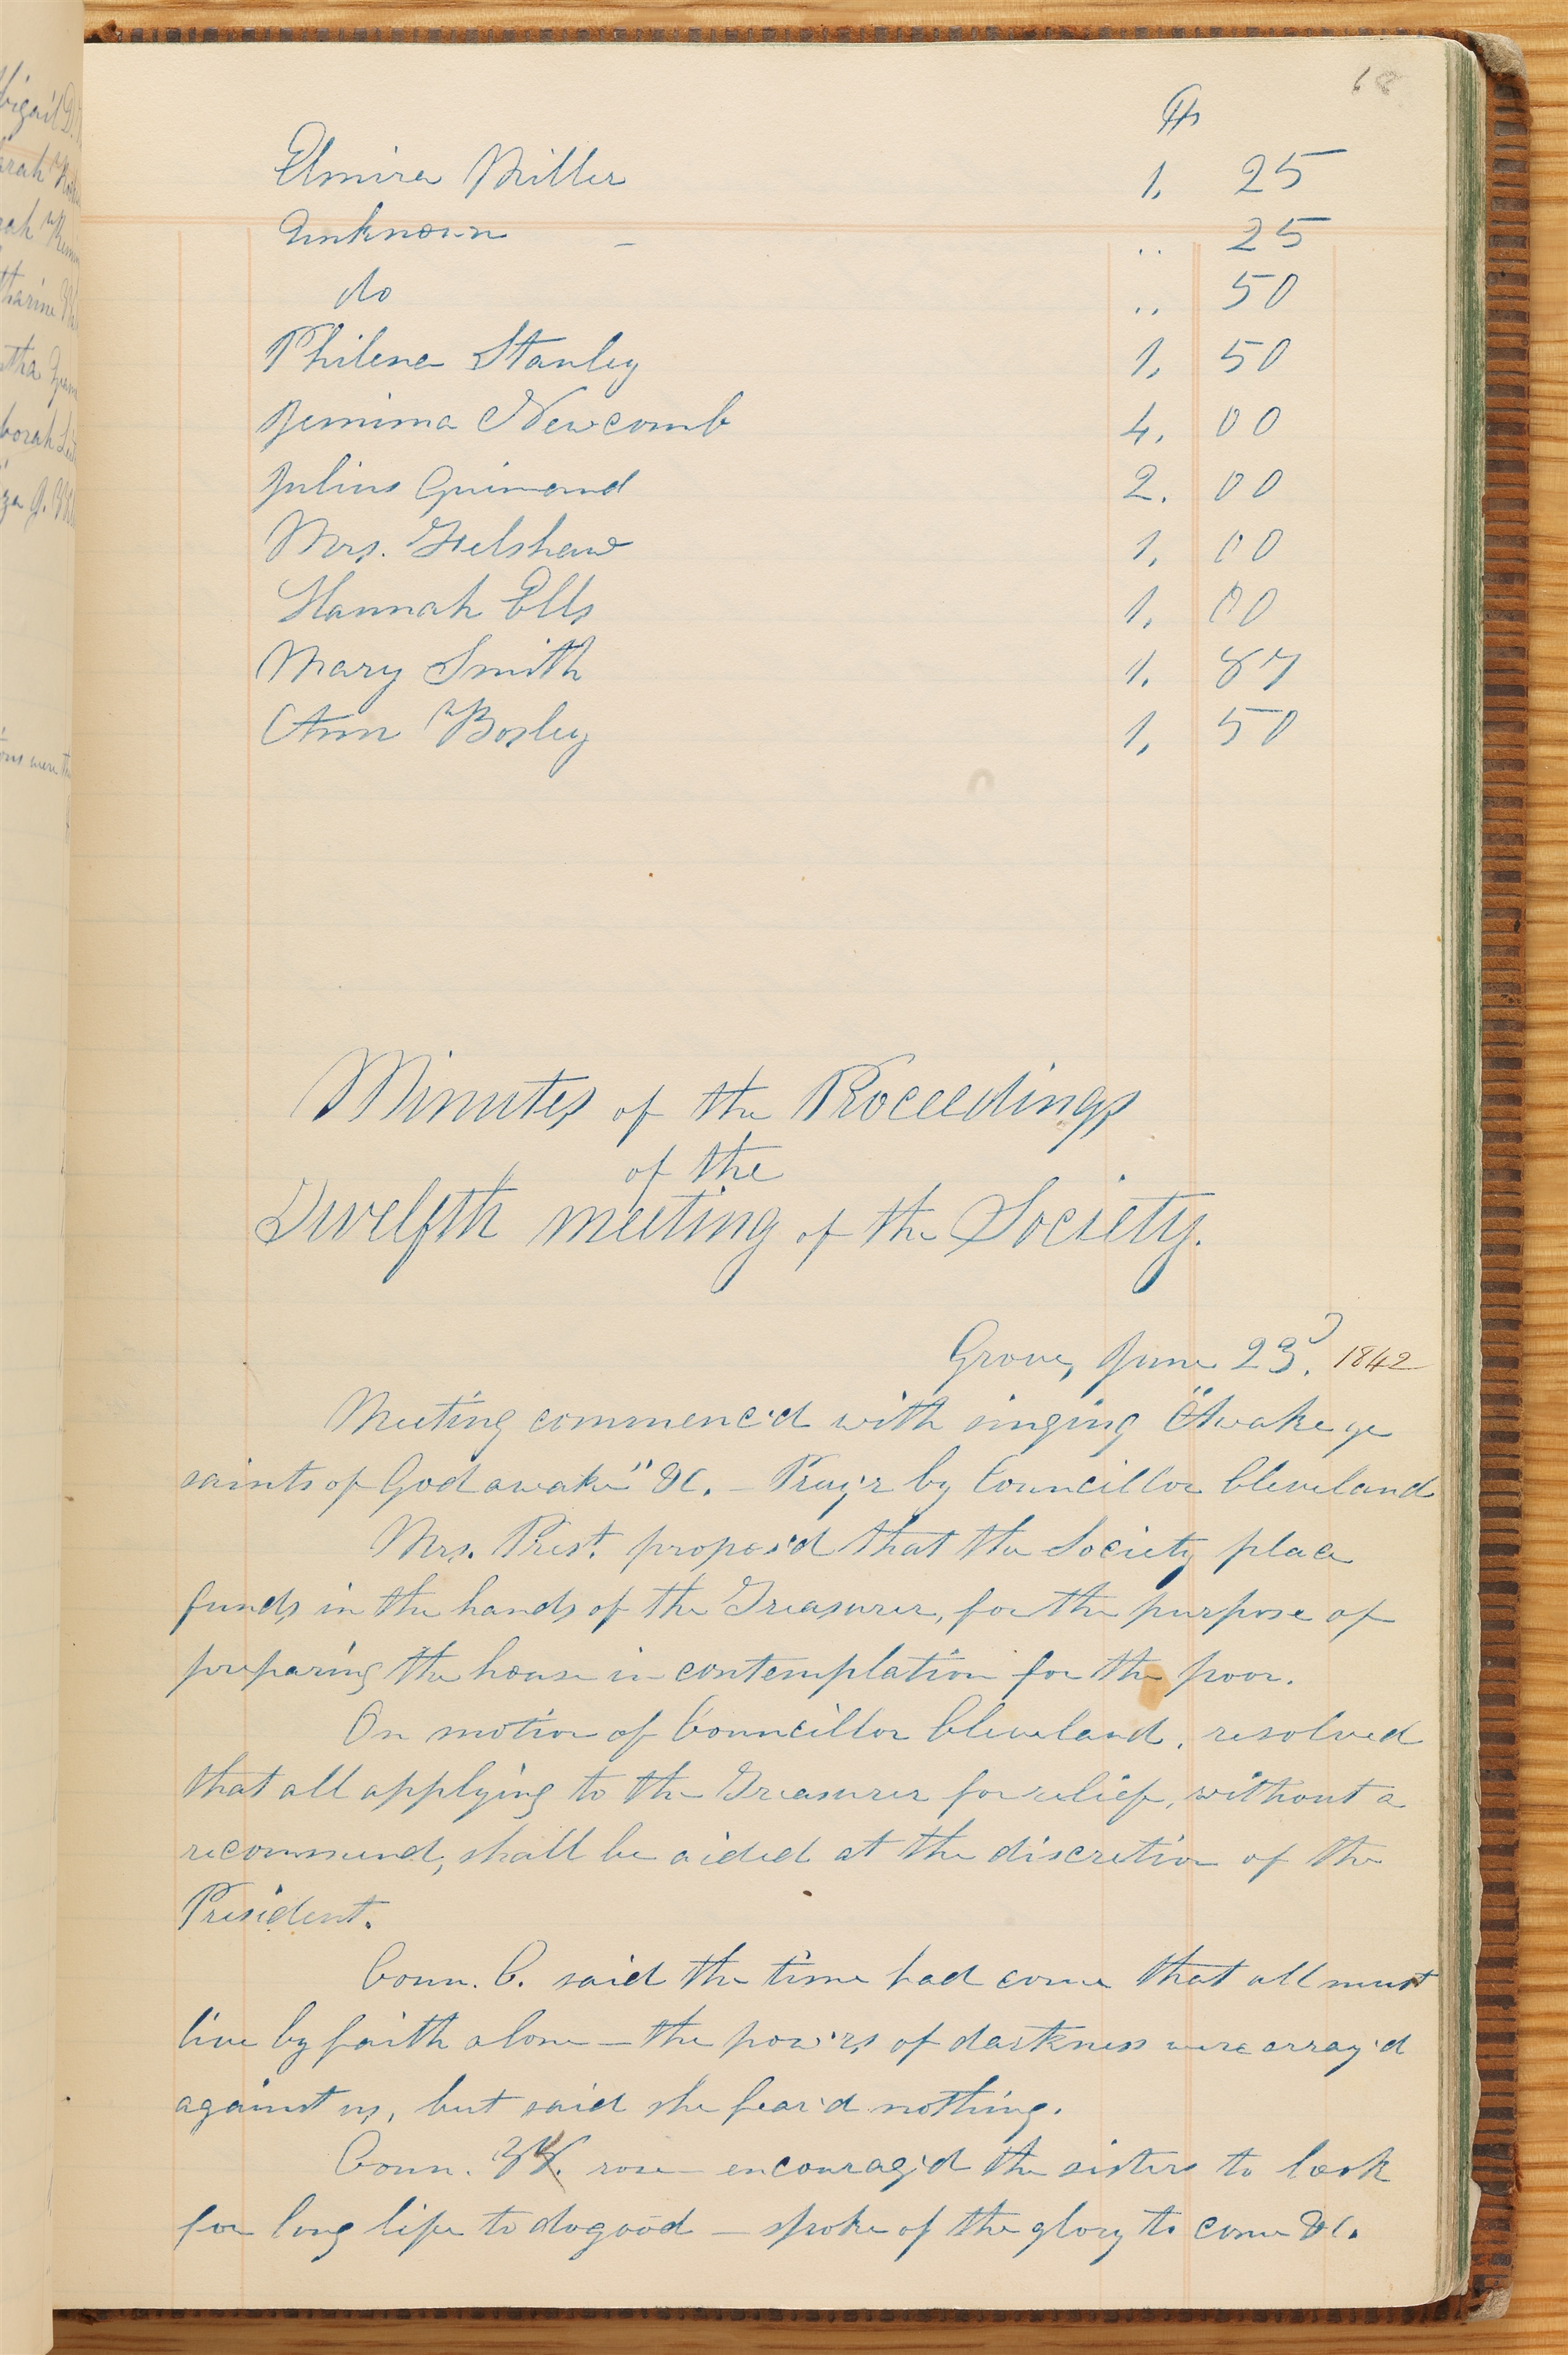 68
$
Elmira Miller 1, 25
Unknown - .. 25
do .. 50
Philena Stanley 1, 50
Jemima Newcomb 4, 00
Julius Guinand 2. 00
Mrs. Felshaw 1, 00
Hannah Ells 1, 00
Mary Smith 1. 87
Ann Bosley 1, 50
Minutes of the Proceedings
of the
Twelfth meeting of the Society.
Grove, June 23d. 1842
Meeting commenc'd with singing "Awake ye
saints of God awake" &c. — Pray'r by Councillor Cleveland
Mrs. Prest. propos'd that the Society place
funds in the hands of the Treasurer, for the purpose of
preparing the house in contemplation for the poor.
On motion of Councillor Cleveland, resolved
that all applying to the Treasurer for relief, without a
recommend, shall be aided at the discretion of the
President.
Coun. C. said the time had come that all must
live by faith alone — the pow'rs of darkness were array'd
against us, but said she fear'd nothing.
Coun. W. rose encourag'd the sisters to look
for long life to do good — spoke of the glory to come &c.